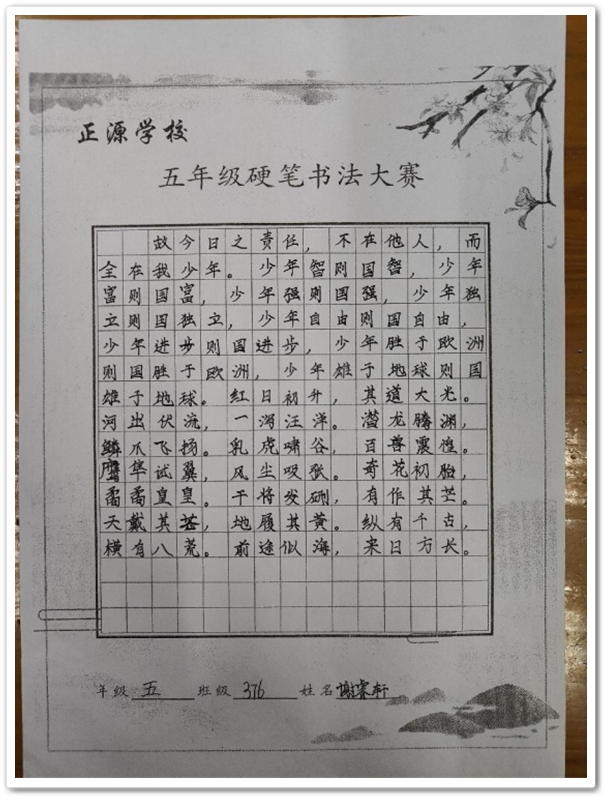 正源学校
五年级硬笔书法大赛
故今日之责任，不在他人，而
全在我少年。少年智则国智，少年
富则国富，少年强则国强，少年独
立则国独立，少年自由则国自由，
少年进步则国进步，少年胜于欧洲
则国胜于欧洲，少年雄于地球则国
雄于地球。红日初升，其道大光。
河出伏流，一泻汪洋。潜龙腾渊，
鳞爪飞扬。乳虎啸谷，百兽震惶。
鹰隼试翼，风尘吸张。奇花初胎，
矞矞皇皇。干将发硎，有作其芒。
天戴其苍，地履其黄。纵有千古，
横有八荒。前途似海，来日方长。
年级 五 班级 376 姓名 谢睿轩